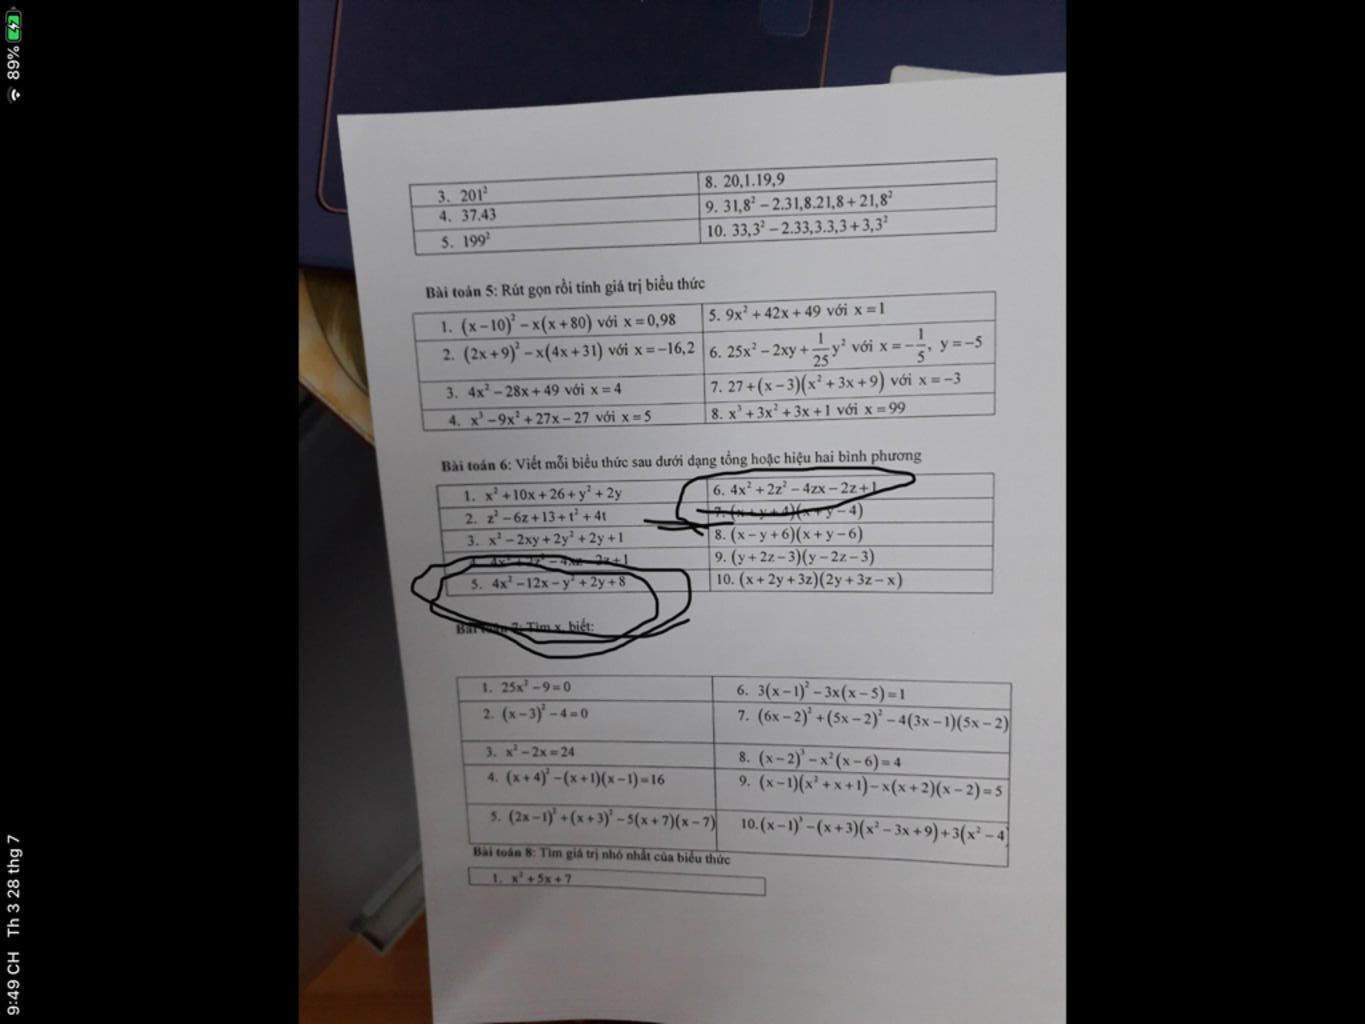 3. 201²
4. 37.43
5. 199²
8. 20,1.19,9
9. 31,8² − 2.31,8.21,8 + 21,8²
10. 33,3² − 2.33,3.3,3 + 3,3²
Bài toán 5: Rút gọn rồi tính giá trị biểu thức
1. (x − 10)² − x(x + 80) với x = 0,98
2. (2x + 9)² − x(4x + 31) với x = −16,2
3. 4x² − 28x + 49 với x = 4
4. x³ − 9x² + 27x − 27 với x = 5
5. 9x² + 42x + 49 với x = 1
6. 25x² − 2xy + 1/25 y² với x = −1/5, y = −5
7. 27 + (x − 3)(x² + 3x + 9) với x = −3
8. x³ + 3x² + 3x + 1 với x = 99
Bài toán 6: Viết mỗi biểu thức sau dưới dạng tổng hoặc hiệu hai bình phương
1. x² + 10x + 26 + y² + 2y
2. z² − 6z + 13 + t² + 4t
3. x² − 2xy + 2y² + 2y + 1
4. 4x² + 2z² − 4xz − 2z + 1
5. 4x² − 12x − y² + 2y + 8
6. 4x² + 2z² − 4zx − 2z + 1
7. (x + y + 4)(x + y − 4)
8. (x − y + 6)(x + y − 6)
9. (y + 2z − 3)(y − 2z − 3)
10. (x + 2y + 3z)(2y + 3z − x)
Bài toán 7: Tìm x, biết:
1. 25x² − 9 = 0
2. (x − 3)² − 4 = 0
3. x² − 2x = 24
4. (x + 4)² − (x + 1)(x − 1) = 16
5. (2x − 1)² + (x + 3)² − 5(x + 7)(x − 7)
6. 3(x − 1)² − 3x(x − 5) = 1
7. (6x − 2)² + (5x − 2)² − 4(3x − 1)(5x − 2)
8. (x − 2)³ − x²(x − 6) = 4
9. (x − 1)(x² + x + 1) − x(x + 2)(x − 2) = 5
10. (x − 1)³ − (x + 3)(x² − 3x + 9) + 3(x² − 4
Bài toán 8: Tìm giá trị nhỏ nhất của biểu thức
1. x² + 5x + 7
9:49 CH Th 3 28 thg 7
89%